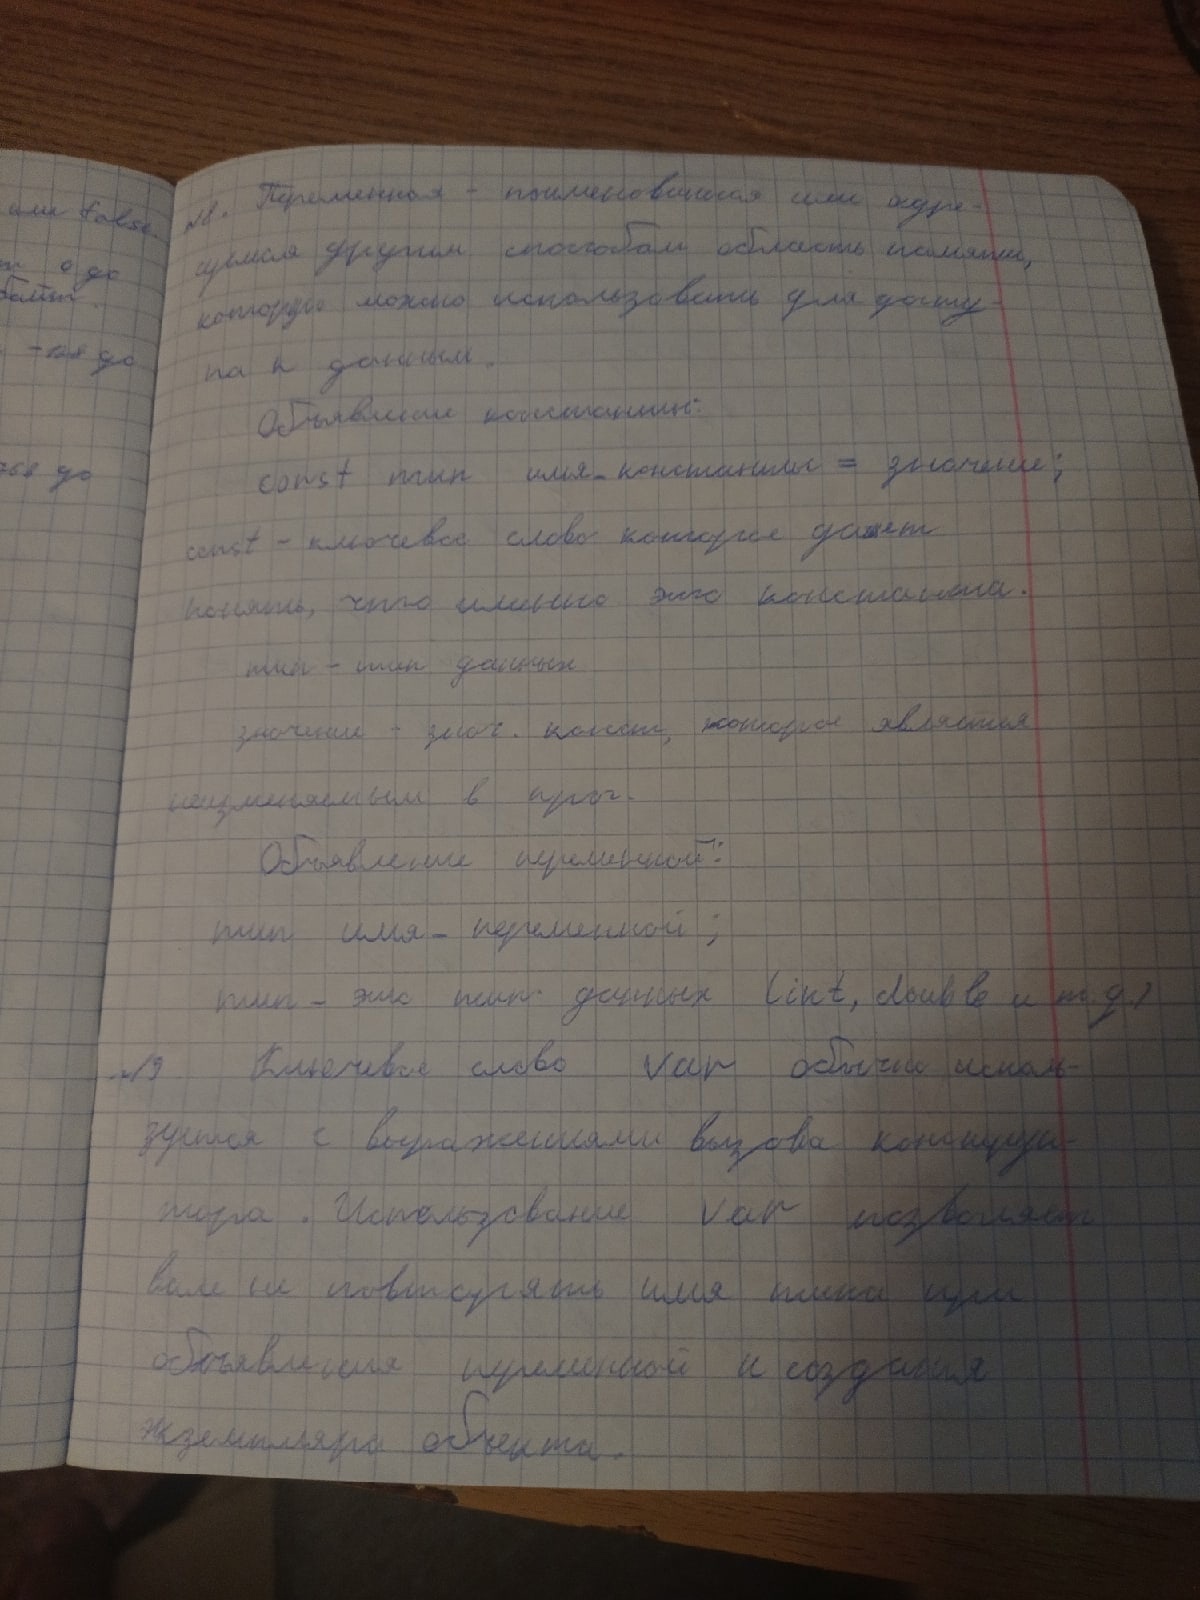 или false.
0 до
байт.
-128 до
768 до
№18. Переменная - поименованная или адре-
суемая другим способом область памяти,
которую можно использовать для досту-
па к данным.
Объявление константы:
const тип имя_константы = значение;
const - ключевое слово которое дает
понять, что именно это константа.
тип - тип данных
значение - знач. конст, которое является
неизменяемым в прог.
Объявление переменной:
тип имя_переменной;
тип - это тип данных (int, double и т.д.)
№19 Ключевое слово var обычно исполь-
зуется с выражениями вызова конструк-
тора. Использование var позволяет
вам не повторять имя типа при
объявлении переменной и создания
экземпляра объекта.